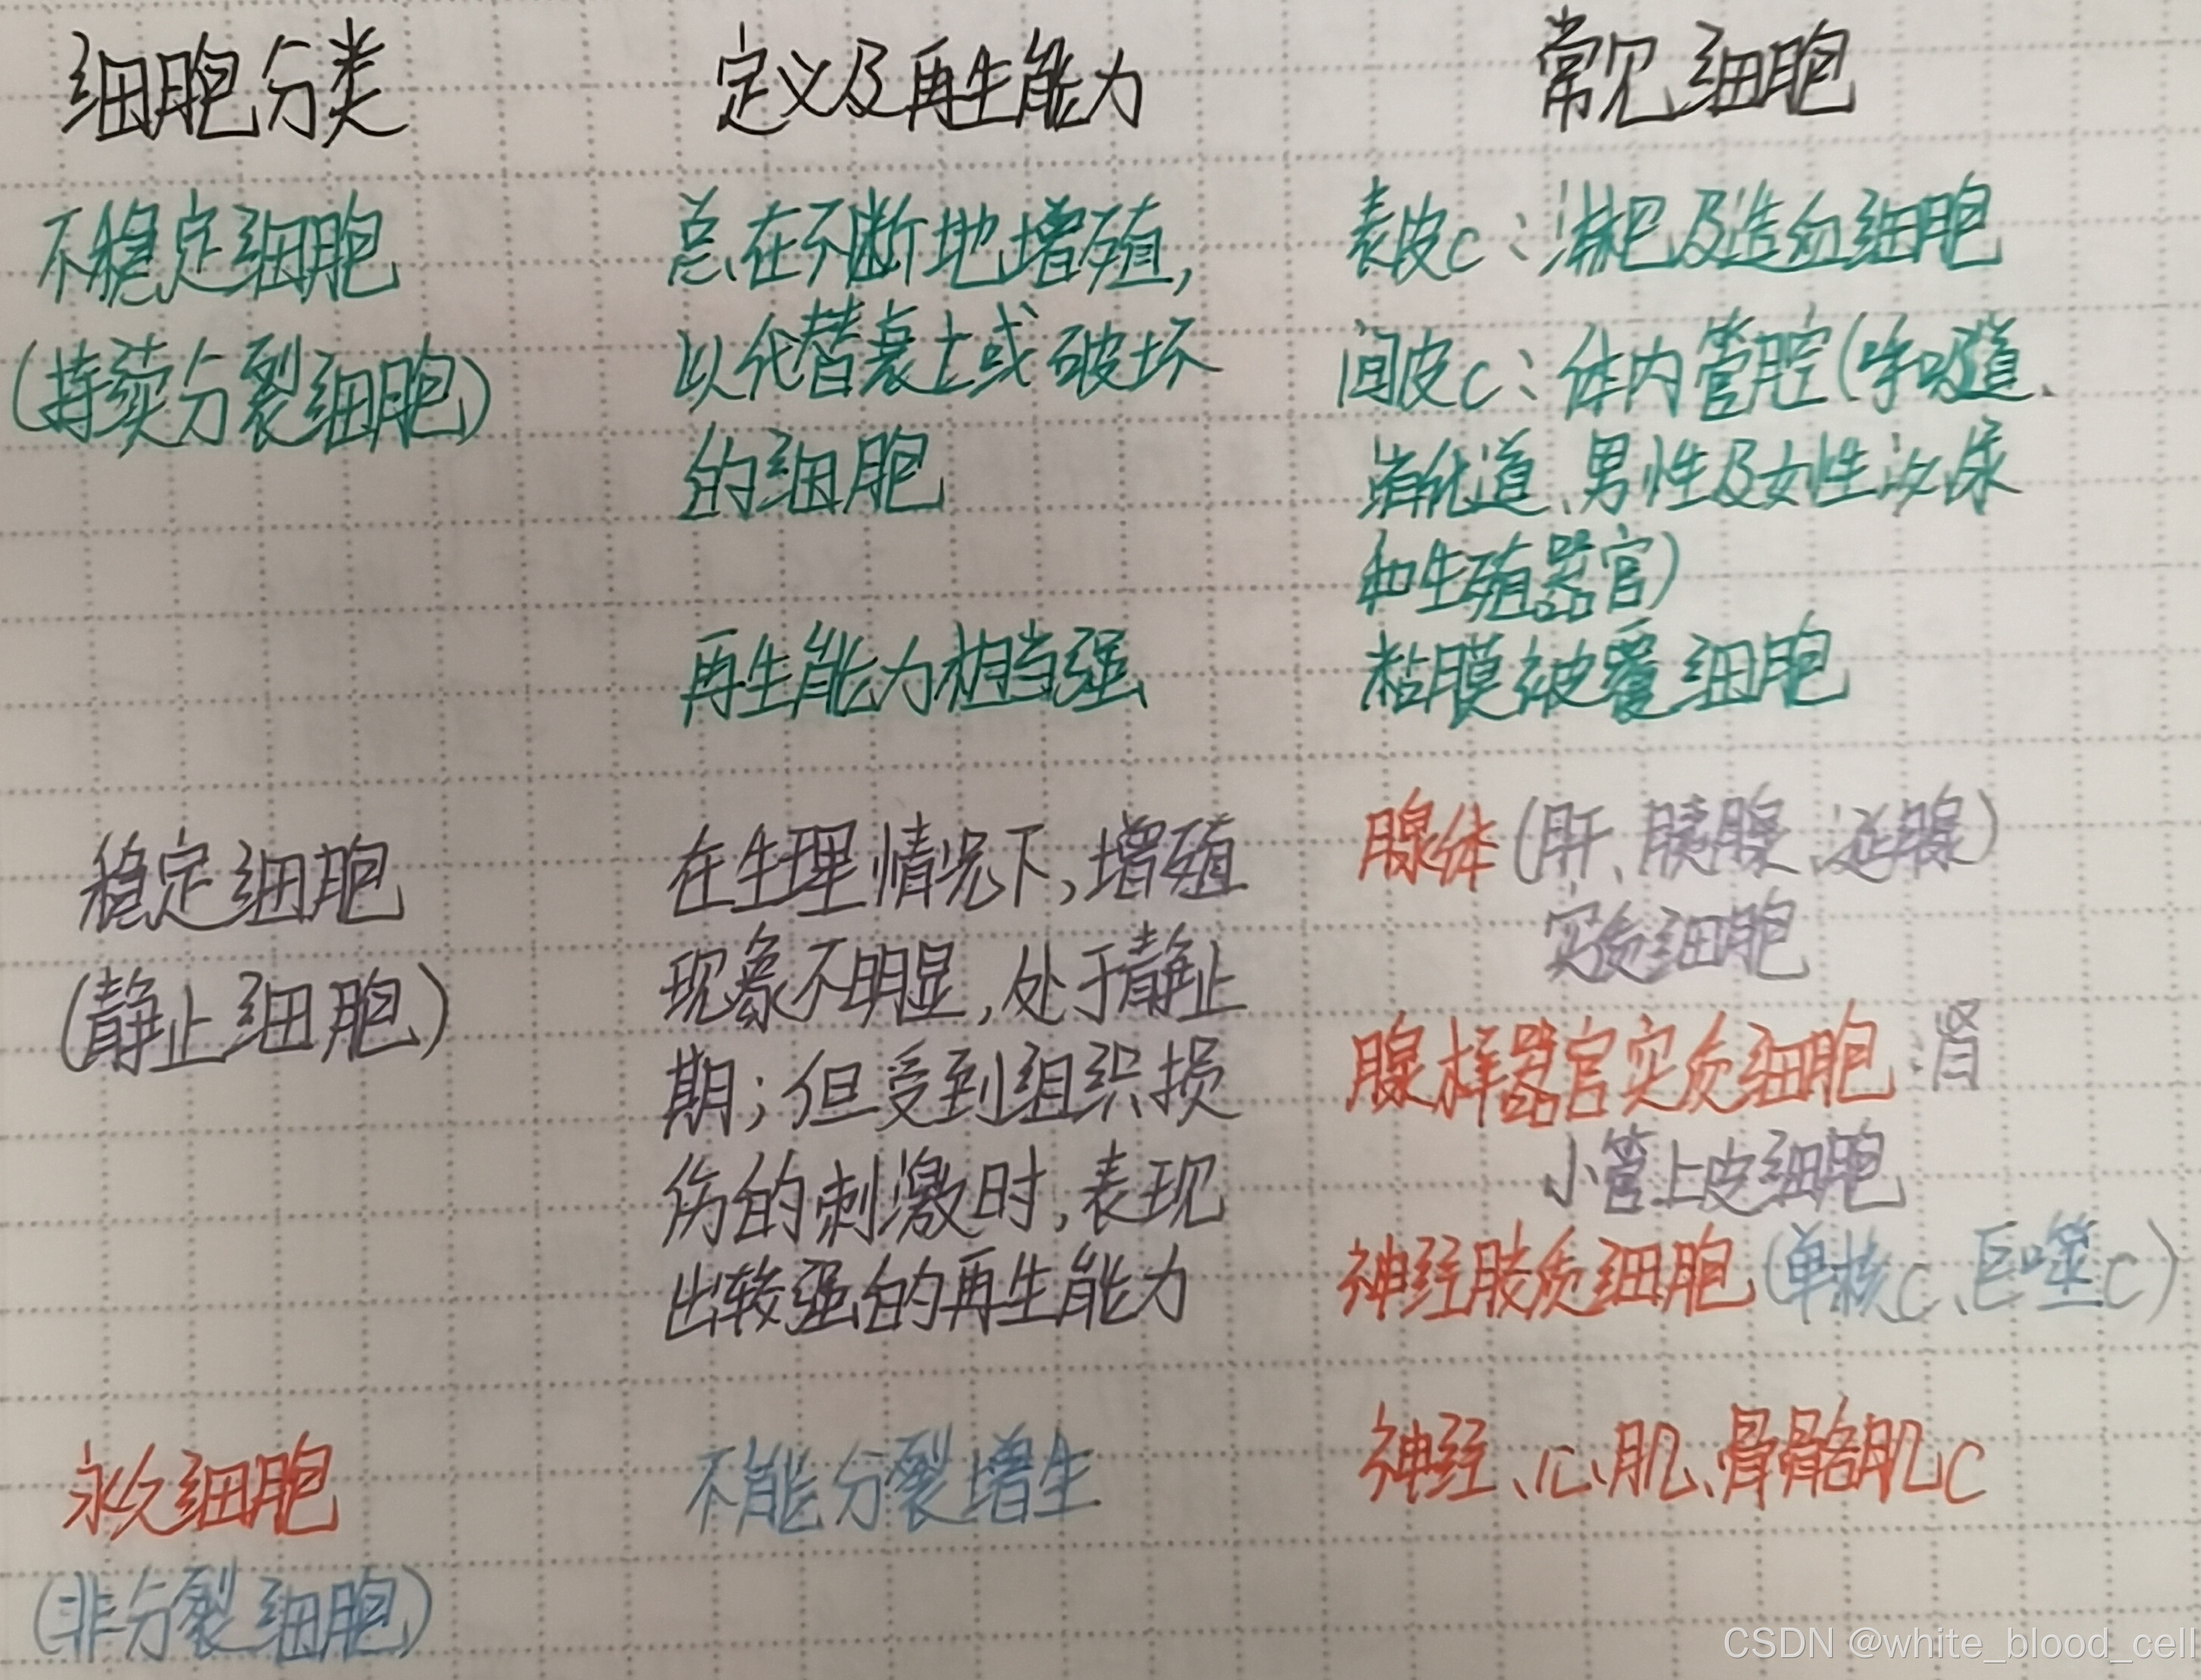 细胞分类 定义及再生能力 常见细胞
不稳定细胞 总在不断地增殖, 表皮c:淋巴及造血细胞
(持续分裂细胞) 以代替衰亡或破坏 间皮c:体内管腔(呼吸道、
的细胞 消化道、男性及女性泌尿
和生殖器官)
再生能力相当强 粘膜被覆细胞
稳定细胞 在生理情况下,增殖 腺体(肝、胰腺、涎腺)
实质细胞
(静止细胞) 现象不明显,处于静止 腺样器官实质细胞:肾
期;但受到组织损 小管上皮细胞
伤的刺激时,表现
出较强的再生能力 神经胶质细胞(单核c、巨噬c)
永久细胞 不能分裂增生 神经、心肌、骨骼肌c
(非分裂细胞)
CSDN @white_blood_cell